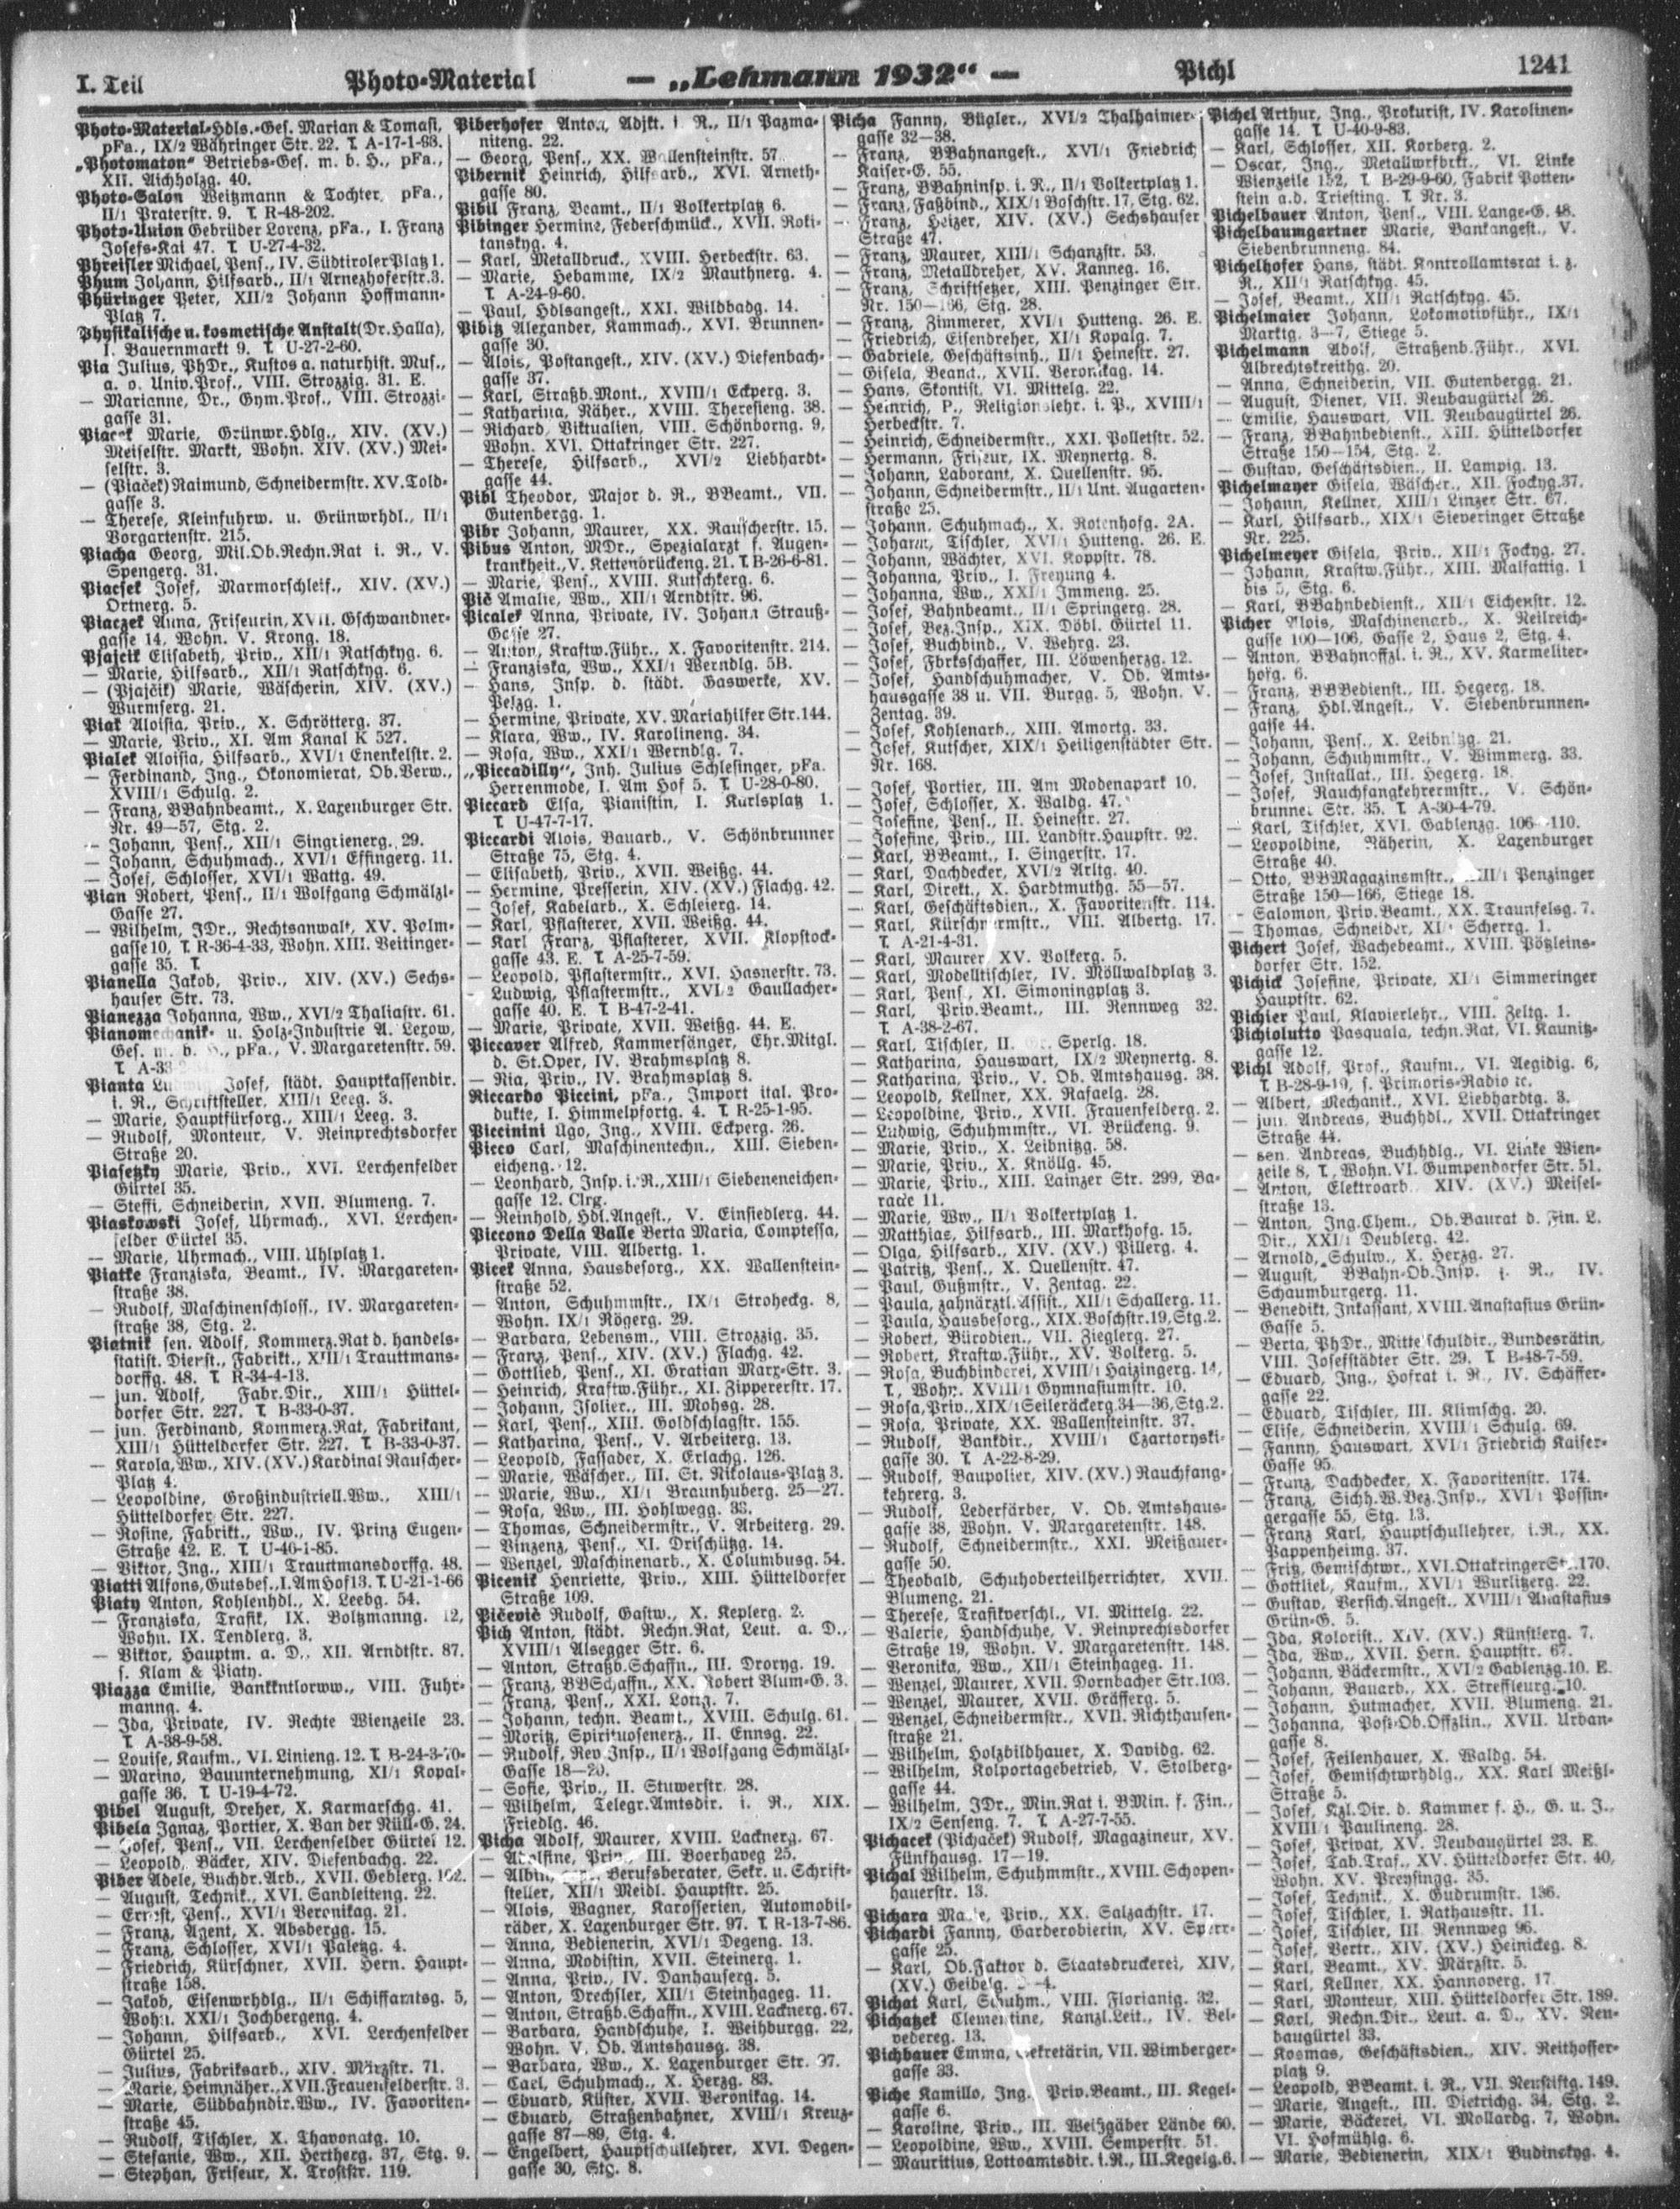 I. Teil
Photo-Material
— „Lehmann 1932“ —
Pichl
1241
Photo-Material-Hdls.-Ges. Marian & Tomasi,
pFa., IX/2 Währinger Str. 22. T. A-17-1-93.
„Photomaton“ Betriebs-Ges. m. b. H., pFa.,
XII. Aichholzg. 40.
Photo-Salon Weitzmann & Tochter, pFa.,
II/1 Praterstr. 9. T. R-48-202.
Photo-Union Gebrüder Lorenz, pFa., I. Franz
Josefs-Kai 47. T. U-27-4-32.
Phreisler Michael, Pens., IV. Südtiroler Platz 1.
Phum Johann, Hilfsarb., II/1 Arnezhoferstr. 3.
Phüringer Peter, XII/2 Johann Hoffmann-
Platz 7.
Physikalische u. kosmetische Anstalt (Dr. Halla),
I. Bauernmarkt 9. T. U-27-2-60.
Pia Julius, PhDr., Kustos a. naturhist. Mus.,
a. o. Univ.Prof., VIII. Strozzig. 31. E.
— Marianne, Dr., Gym.Prof., VIII. Strozzi-
gasse 31.
Piacek Marie, Grünwr.Hdlg., XIV. (XV.)
Meiselstr. Markt, Wohn. XIV. (XV.) Mei-
selstr. 3.
— (Piaček) Raimund, Schneidermstr. XV. Told-
gasse 3.
— Therese, Kleinfuhrw. u. Grünwrhdl., II/1
Vorgartenstr. 215.
Piacha Georg, Mil.Ob.Rechn.Rat i. R., V.
Spengerg. 31.
Piacsek Josef, Marmorschleif., XIV. (XV.)
Ortnerg. 5.
Piaczek Anna, Friseurin, XVII. Gschwandner-
gasse 14, Wohn. V. Krong. 18.
Pjajcik Elisabeth, Priv., XII/1 Ratschkyg. 6.
— Marie, Hilfsarb., XII/1 Ratschkyg. 6.
— (Pjajčik) Marie, Wäscherin, XIV. (XV.)
Wurmserg. 21.
Piak Aloisia, Priv., X. Schrötterg. 37.
— Marie, Priv., XI. Am Kanal K 527.
Pialek Aloisia, Hilfsarb., XVI/1 Enenkelstr. 2.
— Ferdinand, Ing., Ökonomierat, Ob.Verw.,
XVIII/1 Schulg. 2.
— Franz, BBahnbeamt., X. Laxenburger Str.
Nr. 49—57, Stg. 2.
— Johann, Pens., XII/1 Singrienerg. 29.
— Johann, Schuhmach., XVI/1 Effingerg. 11.
— Josef, Schlosser, XVI/1 Wattg. 49.
Pian Robert, Pens., II/1 Wolfgang Schmälzl-
Gasse 27.
— Wilhelm, JDr., Rechtsanwalt, XV. Polm-
gasse 10, T. R-36-4-33, Wohn. XIII. Veitinger-
gasse 35. T.
Pianella Jakob, Priv., XIV. (XV.) Sechs-
hauser Str. 73.
Pianezza Johanna, Ww., XVI/2 Thaliastr. 61.
Pianomechanik- u. Holz-Industrie A. Lexow,
Ges. m. b. H., pFa., V. Margaretenstr. 59.
T. A-33
Pianta Josef, städt. Hauptkassendir.
i. R., Schriftsteller, XIII/1 Leeg. 3.
— Marie, Hauptfürsorg., XIII/1 Leeg. 3.
— Rudolf, Monteur, V. Reinprechtsdorfer
Straße 20.
Piasetzky Marie, Priv., XVI. Lerchenfelder
Gürtel 35.
— Steffi, Schneiderin, XVII. Blumeng. 7.
Piaskowski Josef, Uhrmach., XVI. Lerchen-
felder Gürtel 35.
— Marie, Uhrmach., VIII. Uhlplatz 1.
Piatke Franziska, Beamt., IV. Margareten-
straße 38.
— Rudolf, Maschinenschloss., IV. Margareten-
straße 38, Stg. 2.
Piatnik sen. Adolf, Kommerz.Rat d. handels-
statist. Dienst., Fabrikt., XIII/1 Trauttmans-
dorffg. 48. T. R-34-4-13.
— jun. Adolf, Fabr.Dir., XIII/1 Hüttel-
dorfer Str. 227. T. B-33-0-37.
— jun. Ferdinand, Kommerz.Rat, Fabrikant,
XIII/1 Hütteldorfer Str. 227. T. B-33-0-37.
— Karola, Ww., XIV. (XV.) Kardinal Rauscher-
Platz 4.
— Leopoldine, Großindustriell.Ww., XIII/1
Hütteldorfer Str. 227.
— Rosine, Fabrikt., Ww., IV. Prinz Eugen-
Straße 42. E. T. U-40-1-85.
— Viktor, Ing., XIII/1 Trauttmansdorffg. 48.
Piatti Alfons, Gutsbes., I. Am Hof 13. T. U-21-1-66
Piaty Anton, Kohlenhdl., X. Leebg. 54.
— Franziska, Trafik, IX. Boltzmanng. 12,
Wohn. IX. Tendlerg. 3.
— Viktor, Hauptm. a. D., XII. Arndtstr. 87.
s. Klam & Piaty.
Piazza Emilie, Bankkntlorww., VIII. Fuhr-
manng. 4.
— Ida, Private, IV. Rechte Wienzeile 23.
T. A-38-9-58.
— Louise, Kaufm., VI. Linieng. 12. T. B-24-3-70.
— Marino, Bauunternehmung, XI/1 Kopal-
gasse 36. T. U-19-4-72.
Pibel August, Dreher, X. Karmarschg. 41.
Pibela Ignaz, Portier, X. Van der Nüll-G. 24.
— Josef, Pens., VII. Lerchenfelder Gürtel 12.
— Leopold, Bäcker, XIV. Diefenbachg. 22.
Piber Adele, Buchdr.Arb., XVII. Geblerg. 102.
— August, Technik., XVI. Sandleiteng. 22.
— Ernest, Pens., XVI/1 Veronikag. 21.
— Franz, Agent, X. Absbergg. 15.
— Franz, Schlosser, XVI/1 Paletzg. 4.
— Friedrich, Kürschner, XVII. Hern. Haupt-
straße 158.
— Jakob, Eisenwrhdlg., II/1 Schiffamtsg. 5,
Wohn. XXI/1 Jochbergeng. 4.
— Johann, Hilfsarb., XVI. Lerchenfelder
Gürtel 25.
— Julius, Fabriksarb., XIV. Märzstr. 71.
— Marie, Heimnäher., XVII. Frauenfelderstr. 3.
— Marie, Südbahndir.Ww., IV. Favoriten-
straße 45.
— Rudolf, Tischler, X. Thavonatg. 10.
— Stefanie, Ww., XII. Hertherg. 37, Stg. 9.
— Stephan, Friseur, X. Troststr. 119.
Piberhofer Anton, Adjkt. i. R., II/1 Pazma-
niteng. 22.
— Georg, Pens., XX. Wallensteinstr. 57.
Pibernik Heinrich, Hilfsarb., XVI. Arneth-
gasse 80.
Pibil Franz, Beamt., II/1 Volkertplatz 6.
Pibinger Hermine, Federschmück., XVII. Roki-
tanskyg. 4.
— Karl, Metalldruck., XVIII. Herbeckstr. 63.
— Marie, Hebamme, IX/2 Mauthnerg. 4.
T. A-24-9-60.
— Paul, Hdlsangest., XXI. Wildbadg. 14.
Pibitz Alexander, Kammach., XVI. Brunnen-
gasse 30.
— Alois, Postangest., XIV. (XV.) Diefenbach-
gasse 37.
— Karl, Straßb.Mont., XVIII/1 Eckperg. 3.
— Katharina, Näher., XVIII. Theresieng. 38.
— Richard, Viktualien, VIII. Schönborng. 9,
Wohn. XVI. Ottakringer Str. 227.
— Therese, Hilfsarb., XVI/2 Liebhardt-
gasse 44.
Pibl Theodor, Major d. R., BBeamt., VII.
Gutenbergg. 1.
Pibr Johann, Maurer, XX. Rauscherstr. 15.
Pibus Anton, MDr., Spezialarzt f. Augen-
krankheit., V. Kettenbrückeng. 21. T. B-26-6-81.
— Marie, Pens., XVIII. Kutschkerg. 6.
Pič Amalie, Ww., XII/1 Arndtstr. 96.
Picalek Anna, Private, IV. Johann Strauß-
Gasse 27.
— Anton, Kraftw.Führ., X. Favoritenstr. 214.
— Franziska, Ww., XXI/1 Werndlg. 5B.
— Hans, Insp. d. städt. Gaswerke, XV.
Pelzg. 1.
— Hermine, Private, XV. Mariahilfer Str. 144.
— Klara, Ww., IV. Karolineng. 34.
— Rosa, Ww., XXI/1 Werndlg. 7.
„Piccadilly“, Inh. Julius Schlesinger, pFa.
Herrenmode, I. Am Hof 5. T. U-28-0-80.
Piccard Elsa, Pianistin, I. Karlsplatz 1.
T. U-47-7-17.
Piccardi Alois, Bauarb., V. Schönbrunner
Straße 75, Stg. 4.
— Elisabeth, Priv., XVII. Weißg. 44.
— Hermine, Presserin, XIV. (XV.) Flachg. 42.
— Josef, Kabelarb., X. Schleierg. 14.
— Karl, Pflasterer, XVII. Weißg. 44.
— Karl Franz, Pflasterer, XVII. Klopstock-
gasse 43. E. T. A-25-7-59.
— Leopold, Pflastermstr., XVI. Hasnerstr. 73.
— Ludwig, Pflastermstr., XVI/2 Gaullacher-
gasse 40. E. T. B-47-2-41.
— Marie, Private, XVII. Weißg. 44. E.
Piccaver Alfred, Kammersänger, Ehr.Mitgl.
d. St.Oper, IV. Brahmsplatz 8.
— Ria, Priv., IV. Brahmsplatz 8.
Riccardo Piccini, pFa., Import ital. Pro-
dukte, I. Himmelpfortg. 4. T. R-25-1-95.
Piccinini Ugo, Ing., XVIII. Eckperg. 26.
Picco Carl, Maschinentechn., XIII. Sieben-
eicheng. 12.
— Leonhard, Insp. i. R., XIII/1 Siebeneneichen-
gasse 12. Clrg.
— Reinhold, Hdl.Angest., V. Einsiedlerg. 44.
Piccono Della Valle Berta Maria, Comptessa,
Private, VIII. Albertg. 1.
Picek Anna, Hausbesorg., XX. Wallenstein-
straße 52.
— Anton, Schuhmmstr., IX/1 Stroheckg. 8,
Wohn. IX/1 Rögerg. 29.
— Barbara, Lebensm., VIII. Strozzig. 35.
— Franz, Pens., XIV. (XV.) Flachg. 42.
— Gottlieb, Pens., XI. Gratian Marx-Str. 3.
— Heinrich, Kraftw.Führ., XI. Zippererstr. 17.
— Johann, Isolier., III. Mohsg. 28.
— Karl, Pens., XIII. Goldschlagstr. 155.
— Katharina, Pens., V. Arbeiterg. 13.
— Leopold, Fassader, X. Erlachg. 126.
— Marie, Wäscher., III. St. Nikolaus-Platz 3.
— Marie, Ww., XI/1 Braunhuberg. 25—27.
— Rosa, Ww., III. Hohlwegg. 38.
— Thomas, Schneidermstr., V. Arbeiterg. 29.
— Vinzenz, Pens., XI. Drischützg. 14.
— Wenzel, Maschinenarb., X. Columbusg. 54.
Picenik Henriette, Priv., XIII. Hütteldorfer
Straße 109.
Pičevič Rudolf, Gastw., X. Keplerg. 2.
Pich Anton, städt. Rechn.Rat, Leut. a. D.,
XVIII/1 Alsegger Str. 6.
— Anton, Straßb.Schaffn., III. Droryg. 19.
— Franz, BBSchaffn., XX. Robert Blum-G. 3.
— Franz, Pens., XXI. Lorig. 7.
— Johann, techn. Beamt., XVIII. Schulg. 61.
— Moritz, Spirituosenerz., II. Ennsg. 22.
— Rudolf, Rev.Insp., II/1 Wolfgang Schmälzl-
Gasse 18—20.
— Sofie, Priv., II. Stuwerstr. 28.
— Wilhelm, Telegr.Amtsdir. i. R., XIX.
Friedlg. 46.
Picha Adolf, Maurer, XVIII. Lacknerg. 67.
— Adolfine, Priv., III. Boerhaveg 25.
— Albin, Berufsberater, Sekr. u. Schrift-
steller, XII/1 Meidl. Hauptstr. 25.
— Alois, Wagner, Karosserien, Automobil-
räder, X. Laxenburger Str. 97. T. R-13-7-86.
— Anna, Bedienerin, XVI/1 Degeng. 13.
— Anna, Modistin, XVII. Steinerg. 1.
— Anna, Priv., IV. Danhauserg. 5.
— Anton, Drechsler, XII/1 Steinhageg. 11.
— Anton, Straßb.Schaffn., XVIII. Lacknerg. 67.
— Barbara, Handschuhe, I. Weihburgg. 22,
Wohn. V. Ob. Amtshausg. 38.
— Barbara, Ww., X. Laxenburger Str. 97.
— Carl, Schuhmach., X. Herzg. 83.
— Eduard, Küster, XVII. Veronikag. 14.
— Eduard, Straßenbahner, XVIII/1 Kreuz-
gasse 87—89, Stg. 4.
— Engelbert, Hauptschullehrer, XVI. Degen-
gasse 30, Stg. 8.
Picha Fanny, Bügler., XVI/2 Thalhaimer-
gasse 32—38.
— Franz, BBahnangest., XVI/1 Friedrich
Kaiser-G. 55.
— Franz, BBahninsp. i. R., II/1 Volkertplatz 1.
— Franz, Faßbind., XIX/1 Boschstr. 17, Stg. 62.
— Franz, Heizer, XIV. (XV.) Sechshauser
Straße 47.
— Franz, Maurer, XIII/1 Schanzstr. 53.
— Franz, Metalldreher, XV. Kanneg. 16.
— Franz, Schriftsetzer, XIII. Penzinger Str.
Nr. 150—166, Stg. 28.
— Franz, Zimmerer, XVI/1 Hutteng. 26. E.
— Friedrich, Eisendreher, XI/1 Kopalg. 7.
— Gabriele, Geschäftsinh., II/1 Heinestr. 27.
— Gisela, Beamt., XVII. Veronikag. 14.
— Hans, Skontist, VI. Mittelg. 22.
— Heinrich, P., Religionslehr. i. P., XVIII/1
Herbeckstr. 7.
— Heinrich, Schneidermstr., XXI. Polletstr. 52.
— Hermann, Friseur, IX. Meynertg. 8.
— Johann, Laborant, X. Quellenstr. 95.
— Johann, Schneidermstr., II/1 Unt. Augarten-
straße 25.
— Johann, Schuhmach., X. Rotenhofg. 2A.
— Johann, Tischler, XVI/1 Hutteng. 26. E.
— Johann, Wächter, XVI. Koppstr. 78.
— Johanna, Priv., I. Freyung 4.
— Johanna, Ww., XXI/1 Immeng. 25.
— Josef, Bahnbeamt., II/1 Springerg. 28.
— Josef, Bez.Insp., XIX. Döbl. Gürtel 11.
— Josef, Buchbind., V. Wehrg. 23.
— Josef, Fbrksschaffer, III. Löwenherzg. 12.
— Josef, Handschuhmacher, V. Ob. Amts-
hausgasse 38 u. VII. Burgg. 5, Wohn. V.
Zentag. 39.
— Josef, Kohlenarb., XIII. Amortg. 33.
— Josef, Kutscher, XIX/1 Heiligenstädter Str.
Nr. 168.
— Josef, Portier, III. Am Modenapark 10.
— Josef, Schlosser, X. Waldg. 47.
— Josefine, Pens., II. Heinestr. 27.
— Josefine, Priv., III. Landstr.Hauptstr. 92.
— Karl, BBeamt., I. Singerstr. 17.
— Karl, Dachdecker, XVI/2 Arltg. 40.
— Karl, Direkt., X. Hardtmuthg. 55—57.
— Karl, Geschäftsdien., X. Favoritenstr. 114.
— Karl, Kürschnermstr., VIII. Albertg. 17.
T. A-21-4-31.
— Karl, Maurer XV. Volkerg. 5.
— Karl, Modelltischler, IV. Möllwaldplatz 3.
— Karl, Pens., XI. Simoningplatz 3.
— Karl, Priv.Beamt., III. Rennweg 32.
T. A-38-2-67.
— Karl, Tischler, II. Gr. Sperlg. 18.
— Katharina, Hauswart, IX/2 Meynertg. 8.
— Katharina, Priv., V. Ob. Amtshausg. 38.
— Leopold, Kellner, XX. Rafaelg. 28.
— Leopoldine, Priv., XVII. Frauenfelderg. 2.
— Ludwig, Schuhmmstr., VI. Brückeng. 9.
— Marie, Priv., X. Leibnitzg. 58.
— Marie, Priv., X. Knöllg. 45.
— Marie, Priv., XIII. Lainzer Str. 299, Ba-
racke 11.
— Marie, Ww., II/1 Volkertplatz 1.
— Matthias, Hilfsarb., III. Markhofg. 15.
— Olga, Hilfsarb., XIV. (XV.) Pillerg. 4.
— Patritz, Pens., X. Quellenstr. 47.
— Paul, Gußmstr., V. Zentag. 22.
— Paula, zahnärztl. Assist., XII/1 Schallerg. 11.
— Paula, Hausbesorg., XIX. Boschstr. 19, Stg. 2.
— Robert, Bürodien., VII. Zieglerg. 27.
— Robert, Kraftw.Führ., XV. Volkerg. 5.
— Rosa, Buchbinderei, XVIII/1 Haizingerg. 14,
T., Wohn. XVIII/1 Gymnasiumstr. 10.
— Rosa, Priv., XIX/1 Seileräckerg. 34—36, Stg. 2.
— Rosa, Private, XX. Wallensteinstr. 37.
— Rudolf, Bankdir., XVIII/1 Czartoryski-
gasse 30. T. A-22-8-29.
— Rudolf, Baupolier, XIV. (XV.) Rauchfang-
kehrerg. 3.
— Rudolf, Lederfärber, V. Ob. Amtshaus-
gasse 38, Wohn. V. Margaretenstr. 148.
— Rudolf, Schneidermstr., XXI. Meißauer-
gasse 50.
— Theobald, Schuhoberteilherrichter, XVII.
Blumeng. 21.
— Therese, Trafikverschl., VI. Mittelg. 22.
— Valerie, Handschuhe, V. Reinprechtsdorfer
Straße 19, Wohn. V. Margaretenstr. 148.
— Veronika, Ww., XII/1 Steinhageg. 11.
— Wenzel, Maurer, XVII. Dornbacher Str. 103.
— Wenzel, Maurer, XVII. Gräfferg. 5.
— Wenzel, Schneidermstr., XVII. Richthausen-
straße 21.
— Wilhelm, Holzbildhauer, X. Davidg. 62.
— Wilhelm, Kolportagebetrieb, V. Stolberg-
gasse 44.
— Wilhelm, JDr., Min.Rat i. BMin. f. Fin.,
IX/2 Senseng. 7. T. A-27-7-55.
Pichacek (Pichaček) Rudolf, Magazineur, XV.
Fünfhausg. 17—19.
Pichal Wilhelm, Schuhmmstr., XVIII. Schopen-
hauerstr. 13.
Pichara Marie, Priv., XX. Salzachstr. 17.
Pichardi Fanny, Garderobierin, XV. Sperr-
gasse 25.
— Karl, Ob.Faktor d. Staatsdruckerei, XIV.
(XV.) Geibelg. 4.
Pichat Karl, Schuhm., VIII. Florianig. 32.
Pichatzek Clementine, Kanzl.Leit., IV. Bel-
vedereg. 13.
Pichbauer Emma, Sekretärin, VII. Wimberger-
gasse 33.
Piche Kamillo, Ing., Priv.Beamt., III. Kegel-
gasse 6.
— Karoline, Priv., III. Weißgäber Lände 60.
— Leopoldine, Ww., XVIII. Semperstr. 51.
— Mauritius, Lottoamtsdir. i. R., III. Kegelg. 6.
Pichel Arthur, Ing., Prokurist, IV. Karolinen-
gasse 14. T. U-40-9-83.
— Karl, Schlosser, XII. Korberg. 2.
— Oscar, Ing., Metallwrfbrkt., VI. Linke
Wienzeile 152, T. B-29-9-60, Fabrik Potten-
stein a.d. Triesting. T. Nr. 3.
Pichelbauer Anton, Pens., VIII. Lange-G. 48.
Pichelbaumgartner Marie, Bankangest., V.
Siebenbrunneng. 84.
Pichelhofer Hans, städt. Kontrollamtsrat i. z.
R., XII/1 Ratschkyg. 45.
— Josef, Beamt., XII/1 Ratschkyg. 45.
Pichelmaier Johann, Lokomotivführ., IX/1
Marktg. 3—7, Stiege 5.
Pichelmann Adolf, Straßenb.Führ., XVI.
Albrechtskreithg. 20.
— Anna, Schneiderin, VII. Gutenbergg. 21.
— August, Diener, VII. Neubaugürtel 26.
— Emilie, Hauswart, VII. Neubaugürtel 26.
— Franz, BBahnbedienst., XIII. Hütteldorfer
Straße 150—154, Stg. 2.
— Gustav, Geschäftsdien., II. Lampig. 13.
Pichelmayer Gisela, Wäscher., XII. Fockyg. 37.
— Johann, Kellner, XIII/1 Linzer Str. 67.
— Karl, Hilfsarb., XIX/1 Sieveringer Straße
Nr. 225.
Pichelmeyer Gisela, Priv., XII/1 Fockyg. 27.
— Johann, Kraftw.Führ., XIII. Malfattig. 1
bis 5, Stg. 6.
— Karl, BBahnbedienst., XII/1 Eichenstr. 12.
Picher Alois, Maschinenarb., X. Neilreich-
gasse 100—106, Gasse 2, Haus 2, Stg. 4.
— Anton, BBahnoffzl. i. R., XV. Karmeliter-
hofg. 6.
— Franz, BBBedienst., III. Hegerg. 18.
— Franz, Hdl.Angest., V. Siebenbrunnen-
gasse 44.
— Johann, Pens., X. Leibnitzg. 21.
— Johann, Schuhmmstr., V. Wimmerg. 33.
— Josef, Installat., III. Hegerg. 18.
— Josef, Rauchfangkehrermstr., V. Schön-
brunner Str. 35. T. A-30-4-79.
— Karl, Tischler, XVI. Gablenzg. 106—110.
— Leopoldine, Näherin, X. Laxenburger
Straße 40.
— Otto, BBMagazinsmstr., XIII/1 Penzinger
Straße 150—166, Stiege 18.
— Salomon, Priv.Beamt., XX. Traunfelsg. 7.
— Thomas, Schneider, XI/1 Scherrg. 1.
Pichert Josef, Wachebeamt., XVIII. Pötzleins-
dorfer Str. 152.
Pichick Josefine, Private, XI/1 Simmeringer
Hauptstr. 62.
Pichier Paul, Klavierlehr., VIII. Zeltg. 1.
Pichiolutto Pasquala, techn.Rat, VI. Kaunitz-
gasse 12.
Pichl Adolf, Prof., Kaufm., VI. Aegidig. 6,
T. B-28-9-19, s. Primoris-Radio ic.
— Albert, Mechanik., XVI. Liebhardtg. 3.
— jun. Andreas, Buchhdl., XVII. Ottakringer
Straße 44.
— sen. Andreas, Buchhdlg., VI. Linke Wien-
zeile 8, T., Wohn. VI. Gumpendorfer Str. 51.
— Anton, Elektroarb. XIV. (XV.) Meisel-
straße 13.
— Anton, Ing.Chem., Ob.Baurat d. Fin. L.
Dir., XXI/1 Deublerg. 42.
— Arnold, Schulw., X. Herzg. 27.
— August, BBahn-Ob.Insp. i. R., IV.
Schaumburgerg. 11.
— Benedikt, Inkassant, XVIII. Anastasius Grün-
Gasse 5.
— Berta, PhDr., Mittelschuldir., Bundesrätin,
VIII. Josefstädter Str. 29. T. B-48-7-59.
— Eduard, Ing., Hofrat i. R., IV. Schäffer-
gasse 22.
— Eduard, Tischler, III. Klimschg. 20.
— Elise, Schneiderin, XVIII/1 Schulg. 69.
— Fanny, Hauswart, XVI/1 Friedrich Kaiser-
Gasse 95.
— Franz, Dachdecker, X. Favoritenstr. 174.
— Franz, Sichh.W.Bez.Insp., XVI/1 Possin-
gergasse 55, Stg. 13.
— Franz Karl, Hauptschullehrer, i.R., XX.
Pappenheimg. 37.
— Fritz, Gemischtwr., XVI. Ottakringer Str. 170.
— Gottlieb, Kaufm., XVI/1 Wurlitzerg. 22.
— Gustav, Versich.Angest., XVIII/1 Anastasius
Grün-G. 5.
— Ida, Kolorist., XIV. (XV.) Künstlerg. 7.
— Ida, Ww., XVII. Hern. Hauptstr. 67.
— Johann, Bäckermstr., XVI/2 Gablenzg. 10. E.
— Johann, Bauarb., XX. Streffleurg. 10.
— Johann, Hutmacher, XVII. Blumeng. 21.
— Johanna, Post-Ob.Offzlin., XVII. Urban-
gasse 8.
— Josef, Feilenhauer, X. Waldg. 54.
— Josef, Gemischtwrhdlg., XX. Karl Meißl-
Straße 5.
— Josef, Kzl.Dir. d. Kammer f. H., G. u. J.,
XVIII/1 Paulineng. 28.
— Josef, Privat, XV. Neubaugürtel 23. E.
— Josef, Tab.Traf., XV. Hütteldorfer Str. 40,
Wohn. XV. Preysingg. 35.
— Josef, Technik., X. Gudrunstr. 136.
— Josef, Tischler, I. Rathausstr. 11.
— Josef, Tischler, III. Rennweg 96.
— Josef, Vertr., XIV. (XV.) Heinickeg. 8.
— Karl, Beamt., XV. Märzstr. 5.
— Karl, Kellner, XX. Hannoverg. 17.
— Karl, Monteur, XIII. Hütteldorfer Str. 189.
— Karl, Rechn.Dir., Leut. a. D., XV. Neu-
baugürtel 33.
— Kosmas, Geschäftsdien., XIV. Reithoffer-
platz 9.
— Leopold, BBeamt. i. R., VII. Neustiftg. 149.
— Marie, Angest., III. Dietrichg. 34, Stg. 2.
— Marie, Bäckerei, VI. Mollardg. 7, Wohn.
VI. Hofmühlg. 6.
— Marie, Bedienerin, XIX/1 Budinskyg. 4.